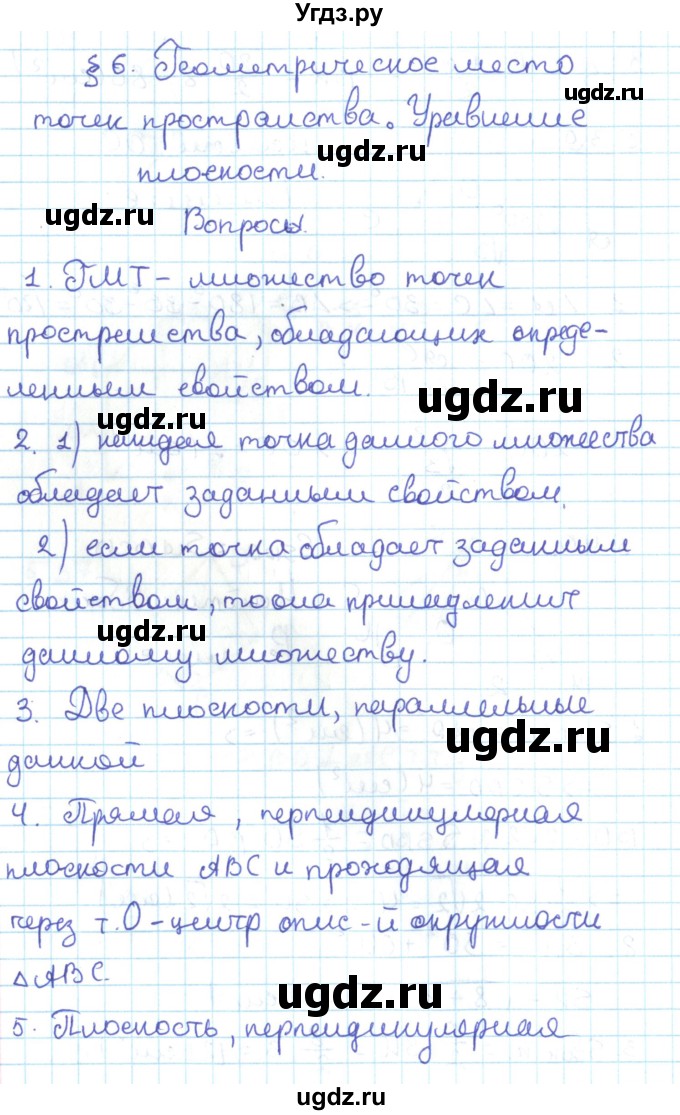 Угдз.ру
§ 6. Геометрическое место
ugdz.ru
точек пространства. Уравнение
ugdz.ru
плоскости.
ugdz.ru
Вопросы.
1. ГМТ – множество точек
пространства, обладающих опреде-
ugdz.ru
ленным свойством.
ugdz.ru
2. 1) каждая точка данного множества
обладает заданным свойством.
2) если точка обладает заданным
свойством, то она принадлежит
ugdz.ru
данному множеству.
3. Две плоскости, параллельные
ugdz.ru
данной
4. Прямая, перпендикулярная
плоскости ABC и проходящая
через т. O – центр опис-й окружности
△ABC.
ugdz.ru
5. Плоскость, перпендикулярная
ugdz.ru